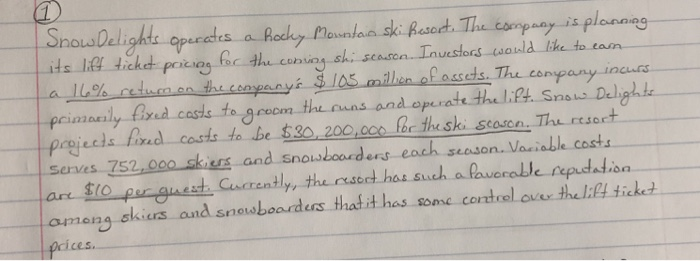 ①
Snow Delights operates a Rocky Mountain ski Resort. The company is planning
its lift ticket pricing for the coming ski season. Investors would like to earn
a 16% return on the company's $105 million of assets. The company incurs
primarily fixed costs to groom the runs and operate the lift. Snow Delights
projects fixed costs to be $30,200,000 for the ski season. The resort
serves 752,000 skiers and snowboarders each season. Variable costs
are $10 per guest. Currently, the resort has such a favorable reputation
among skiers and snowboarders that it has some control over the lift ticket
prices.